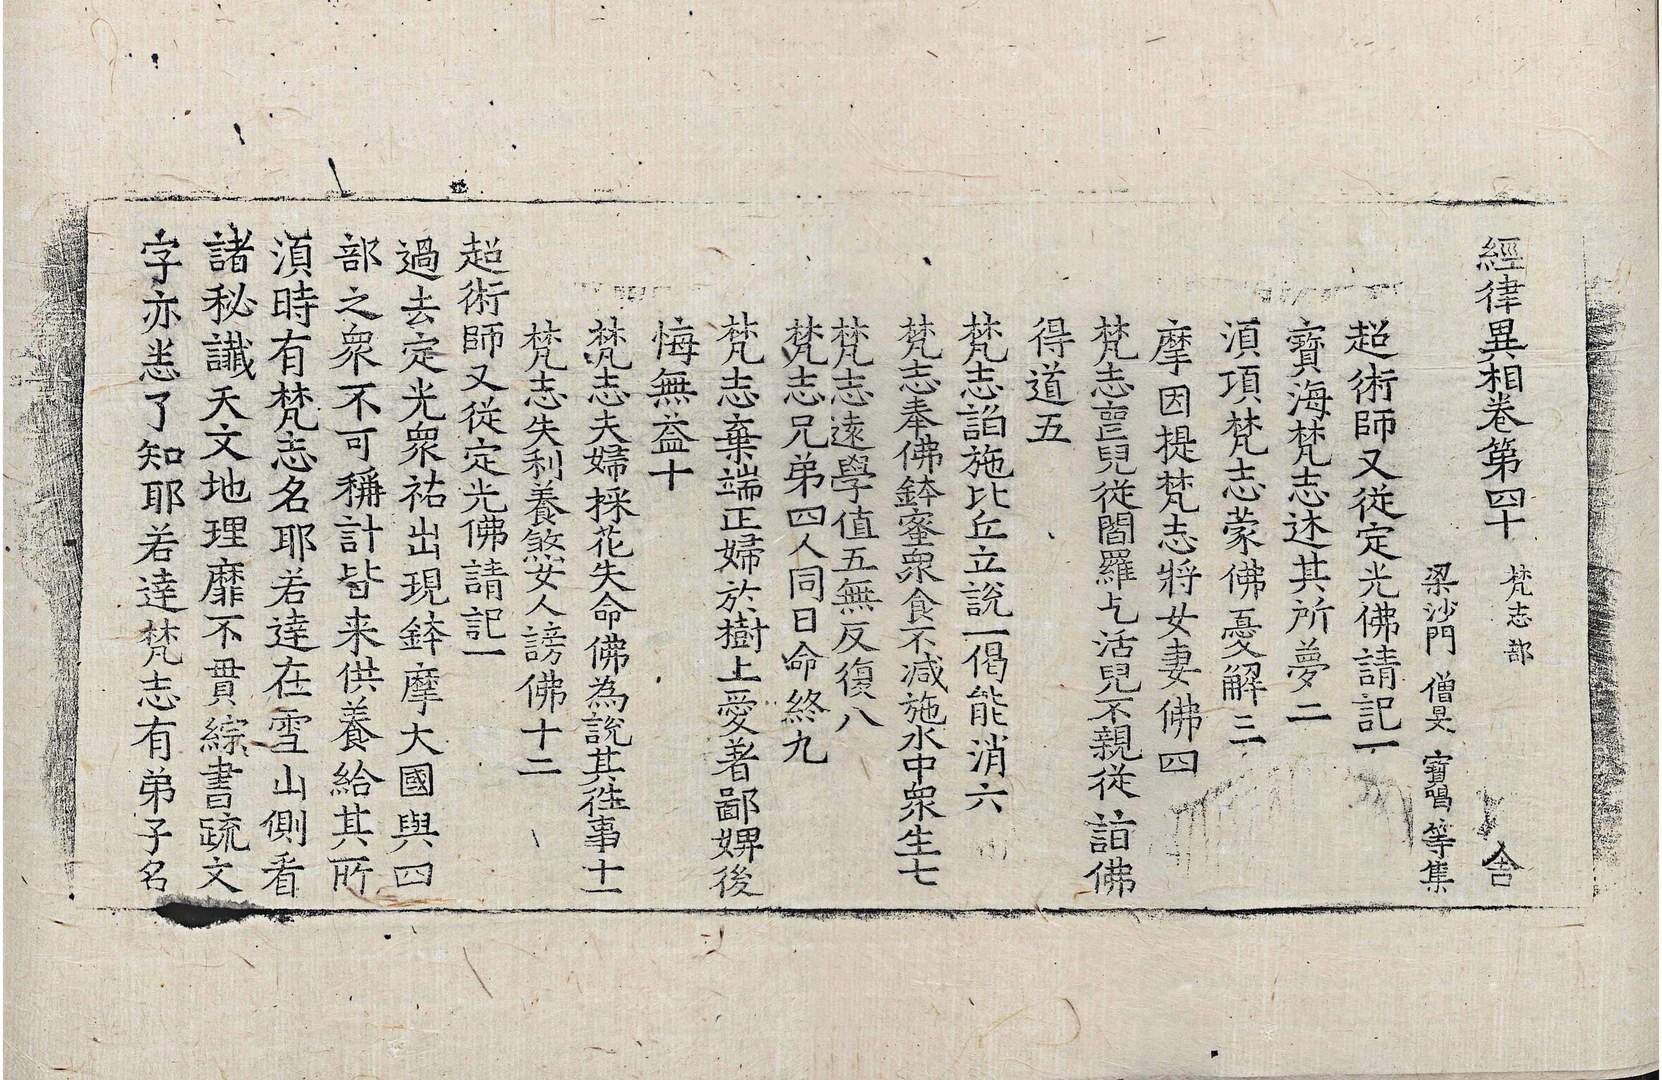 經律異相卷第四十 梵志部 舍
梁沙門 僧旻 寶唱 等集
超術師又從定光佛請記一
寶海梵志述其所夢二
湏項梵志蒙佛憂解三
摩因提梵志將女妻佛四
梵志喪兒從閻羅乞活兒不親從詣佛
得道五
梵志詣施比丘立說一偈能消六
梵志奉佛鉢蜜衆食不減施水中衆生七
梵志遠學值五無反復八
梵志兄弟四人同日命終九
梵志棄端正婦於樹上愛著鄙婢後
悔無益十
梵志夫婦採花失命佛為說其往事十一
梵志失利養煞女人謗佛十二
超術師又從定光佛請記一
過去定光衆祐出現鉢摩大國與四
部之衆不可稱計皆来供養給其所
湏時有梵志名耶若達在雪山側看
諸秘讖天文地理靡不貫綜書疏文
字亦悉了知耶若達梵志有弟子名